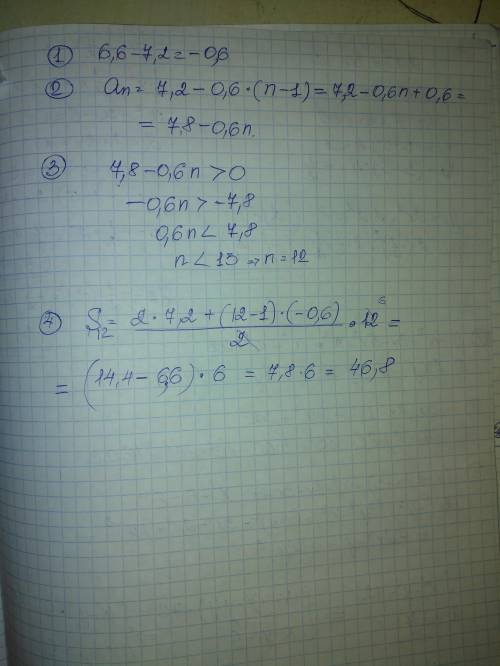 ① 6,6-7,2=-0,6
② an= 7,2-0,6·(n-1)=7,2-0,6n+0,6=
= 7,8-0,6n.
③ 7,8-0,6n>0
-0,6n>-7,8
0,6n< 7,8
n<13 ⇒ n=12
④ S12= (2·7,2+(12-1)·(-0,6))/2 ·12 6 =
= (14,4-6,6)·6 = 7,8·6= 46,8